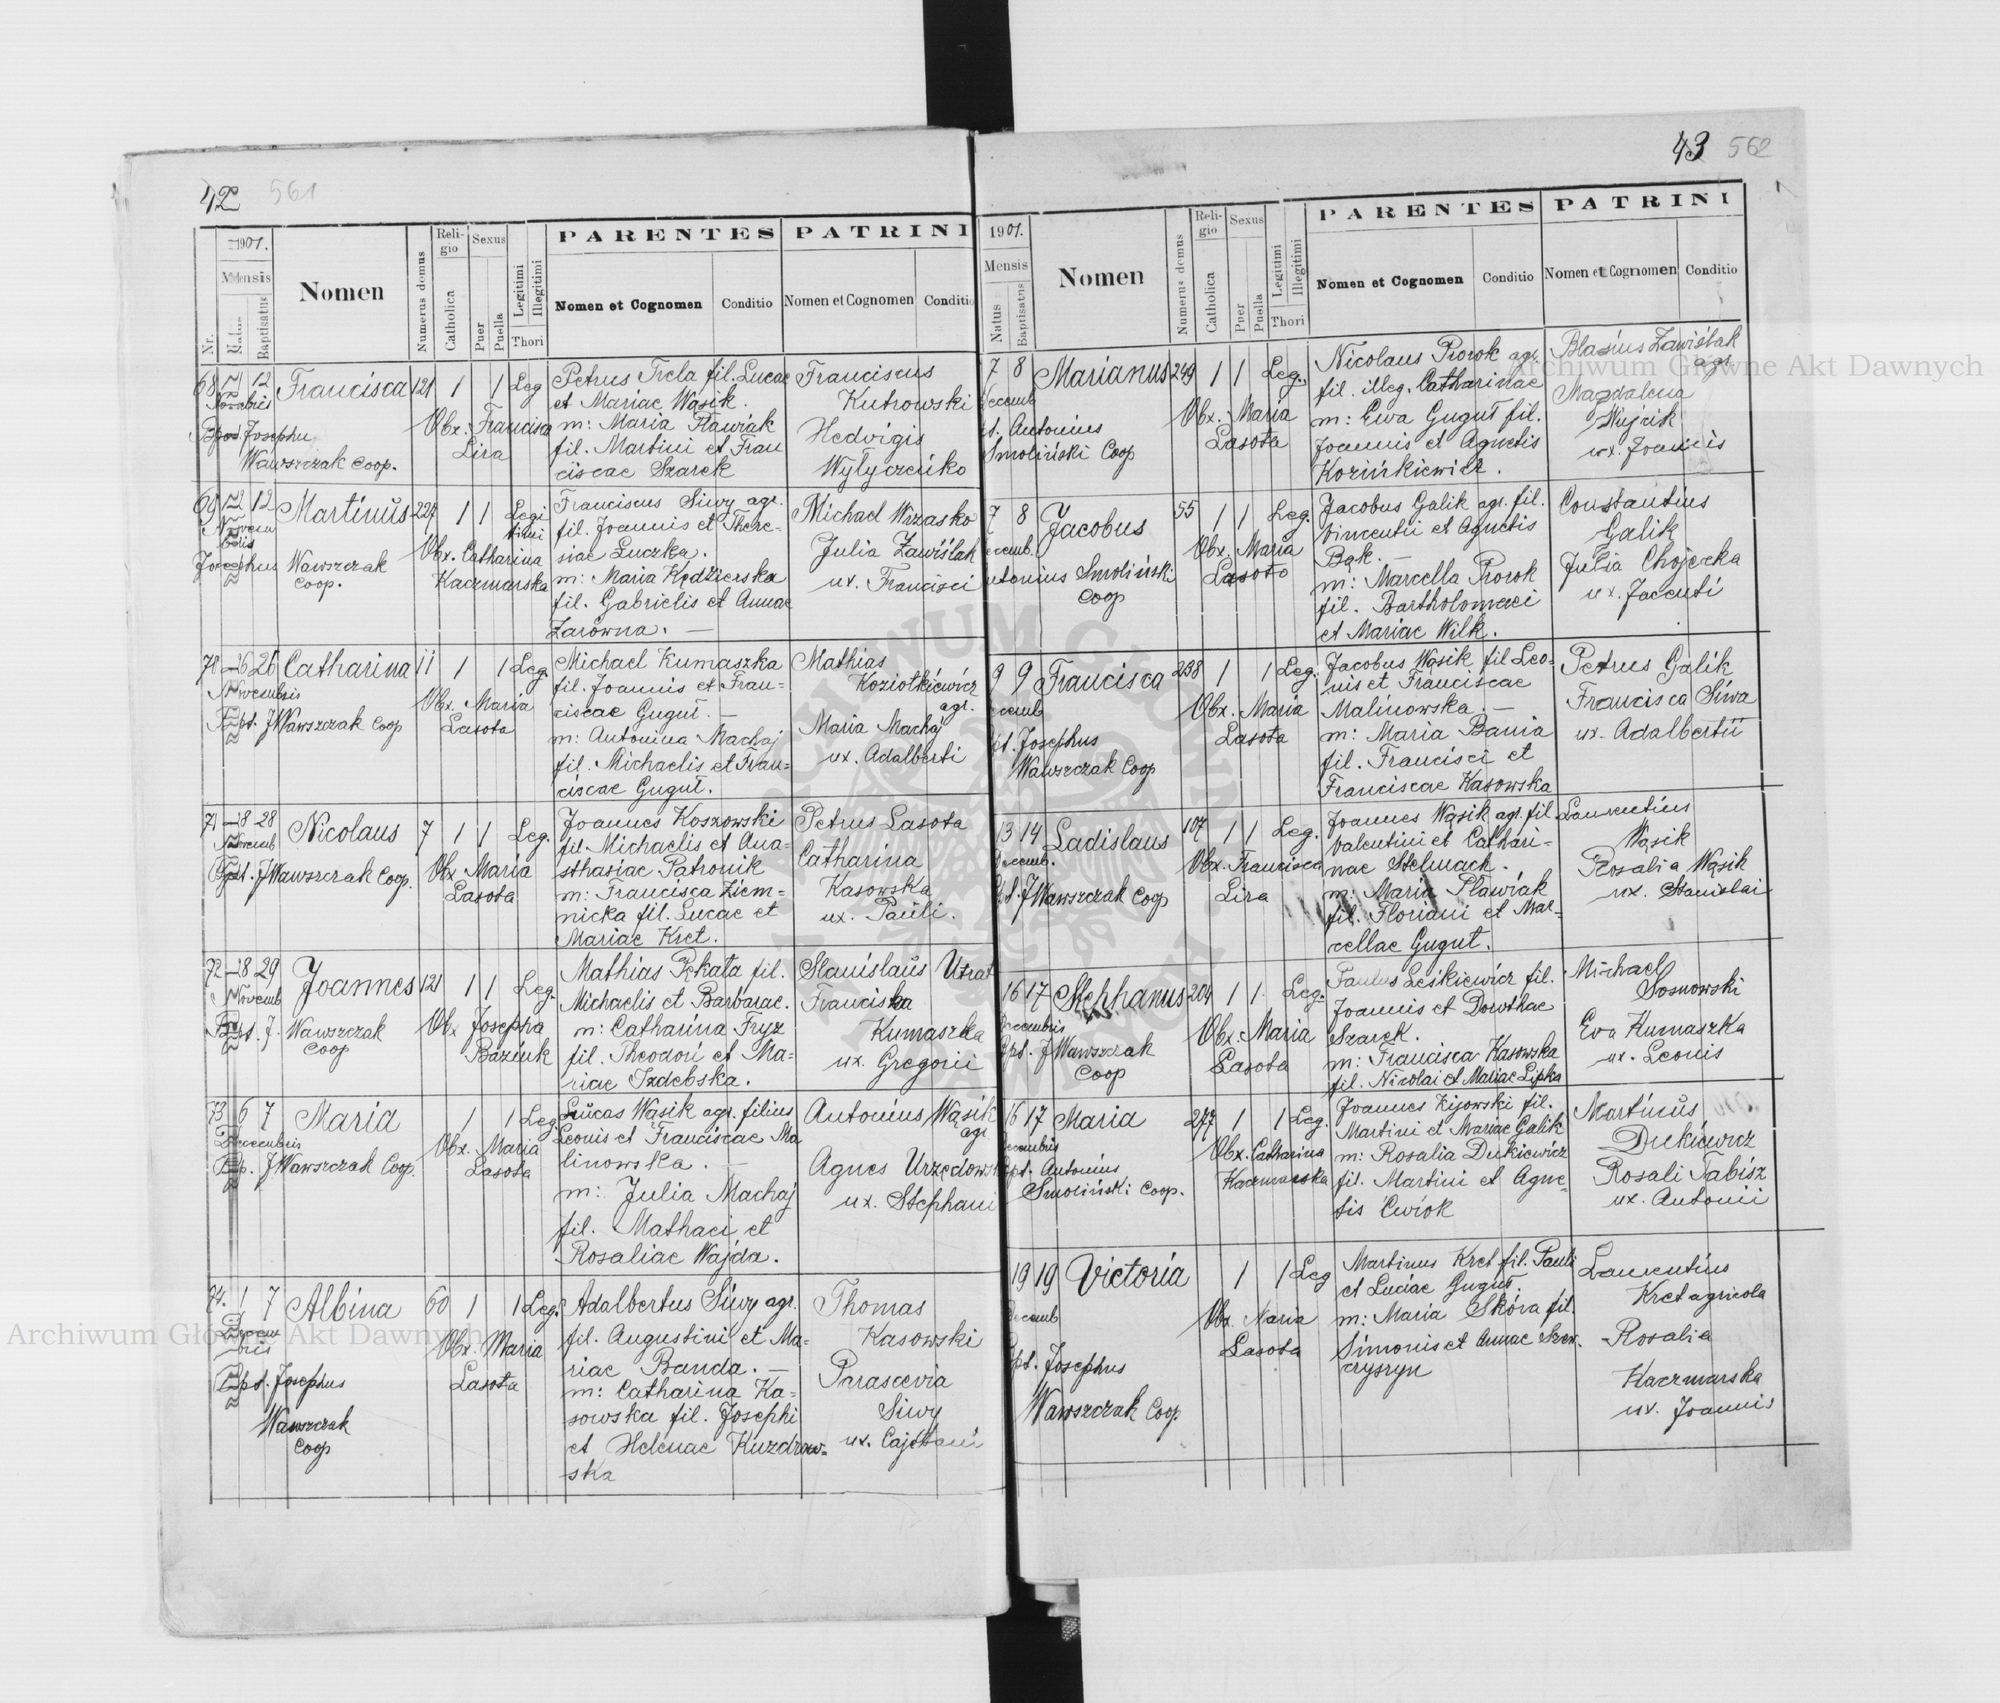 42 561
1901.
Mensis
Nr.
Natus
Baptisatus
Nomen
Numerus domus
Religio
Catholica
Sexus
Puer
Puella
Legitimi
Illegitimi
Thori
PARENTES
Nomen et Cognomen
Conditio
PATRINI
Nomen et Cognomen
Conditio
68 12 Francisca 121 1 1 Leg
Bpt. Josephu
Wawszczak Coop.
Obx. Francisca
Lira
Petrus Trela fil. Lucae
et Mariae Wąsik.
m: Maria Flawiak
fil. Martini et Fran
ciscae Szarek
Franciscus
Kutrowski
Hedvigis
Wytyczeńko
69 12 12 Martinus 224 1 1 Legi
timi
Novem
bris
Josephus Wawszczak
Coop.
Obx. Catharina
Kaczmarska
Franciscus Siwy agr.
fil. Joannis et There-
siae Luczka.
m: Maria Kędzierska
fil. Gabrielis et Annae
Żarówna. —
Michael Wrzasko
Julia Zawiślak
ux. Francisci
70 26 26 Catharina 11 1 1 Leg.
Novembris
Bpt. J Wawszczak Coop
Obx. Maria
Lasota
Michael Kumaszka
fil. Joannis et Fran=
ciscae Guguł. —
m: Antonina Machaj
fil. Michaelis et Fran=
ciscae Guguł.
Mathias
Koziołkiewicz
agr.
Maria Machaj
ux. Adalberti
71 28 28 Nicolaus 7 1 1 Leg.
Novemb
Bpt. J Wawszczak Coop.
Obx Maria
Lasota
Joannes Koszowski
fil. Michaelis et Ana-
sthasiae Patronik
m: Francisca Ziem-
nicka fil. Lucae et
Mariae Kret.
Petrus Lasota
Catharina
Kasowska
ux. Pauli.
72 28 29 Joannes 121 1 1 Leg.
Novemb
Bpt. J. Wawszczak
Coop
Obx Josepha
Baziuk
Mathias Pękata fil.
Michaelis et Barbarae.
m: Catharina Fryz
fil. Theodori et Ma-
riae Izdebska.
Stanislaus Utrat
Franciska
Kumaszka
ux. Gregorii
73 6 7 Maria 1 1 Leg.
Decembris
Bp. J Wawszczak Coop.
Obx. Maria
Lasota
Lucas Wąsik agr. filius
Leonis et Franciscae Ma
linowska. —
m: Julia Machaj
fil. Mathaei et
Rosaliae Wajda.
Antonius Wąsik
agr
Agnes Urzędowsk
ux. Stephani
74. 1 7 Albina 60 1 1 Leg.
Decem
bris
Bpt. Josephus
Wawszczak
Coop
Obx. Maria
Lasota
Adalbertus Siwy agr.
fil. Augustini et Ma-
riae Banda. —
m: Catharina Ka=
sowska fil. Josephi
et Helenae Kuzdrow=
ska
Thomas
Kasowski
Parascevia
Siwy
ux. Cajetani
43 562
1901.
Mensis
Natus
Baptisatus
Nomen
Numerus domus
Religio
Catholica
Sexus
Puer
Puella
Legitimi
Illegitimi
Thori
PARENTES
Nomen et Cognomen
Conditio
PATRINI
Nomen et Cognomen
Conditio
7 8 Marianus 249 1 1 Leg.
ecemb
pt. Antonius
Smoliński Coop
Obx. Maria
Lasota
Nicolaus Prorok agr.
fil. illeg. Catharinae
m: Ewa Guguł fil.
Joannis et Agnetis
Kozińkiewicz.
Blasius Zawiślak
agr.
Magdalena
Wujcik
ux. Joannis
7 8 Jacobus 55 1 1 Leg.
ecemb.
ntonius Smoliński
Coop
Obx. Maria
Lasoto
Jacobus Galik agr. fil.
Vincentii et Agnetis
Bąk. —
m: Marcella Prorok
fil. Bartholomaei
et Mariae Wilk.
Constantius
Galik
Julia Chojecka
ux. Jacenti
9 9 Francisca 238 1 1 Leg.
ecemb
pt. Josephus
Wawszczak Coop
Obx. Maria
Lasota
Jacobus Wąsik fil Leo-
nis et Franciscae
Malinowska. —
m: Maria Bania
fil. Francisci et
Franciscae Kasowska
Petrus Galik
Francisca Siwa
ux. Adalbertii
13 14 Ladislaus 107 1 1 Leg.
Decemb.
Bpt. J Wawszczak Coop
Obx. Francisca
Lira
Joannes Wąsik agr. fil
Valentini et Cathari-
nae Stelmach.
m: Maria Flawiak
fil. Floriani et Mar-
cellae Gugut.
Laurentius
Wąsik
Rosalia Wąsik
ux. Stanislai
16 17 Stephanus 204 1 1 Leg.
Decembris
Bpt. J Wawszczak
Coop
Obx. Maria
Lasota
Paulus Leśkiewicz fil.
Joannis et Dorothae
Szarek.
m: Francisca Kasowska
fil. Nicolai et Mariae Lipka
Michael
Sosnowski
Eva Kumaszka
ux. Leonis
16 17 Maria 277 1 1 Leg.
ecembris
Bpt. Antonius
Smoliński Coop.
Obx. Catharina
Kaczmarska
Joannes Kijowski fil.
Martini et Mariae Galik
m: Rosalia Dukiewicz
fil. Martini et Agne-
tis Ćwiok
Martinus
Dukiewicz
Rosali Tabisz
ux. Antonii
19 19 Victoria 1 1 Leg
Decemb
Bpt. Josephus
Wawszczak Coop
Obx. Maria
Lasota
Martinus Kret fil. Pauli
et Luciae Guguł.
m: Maria Skóra fil.
Simonis et Annae Szew.
czyszyn
Laurentius
Kret agricola
Rosalia
Kaczmarska
ux. Joannis
Archiwum Główne Akt Dawnych
Archiwum Główne Akt Dawnych